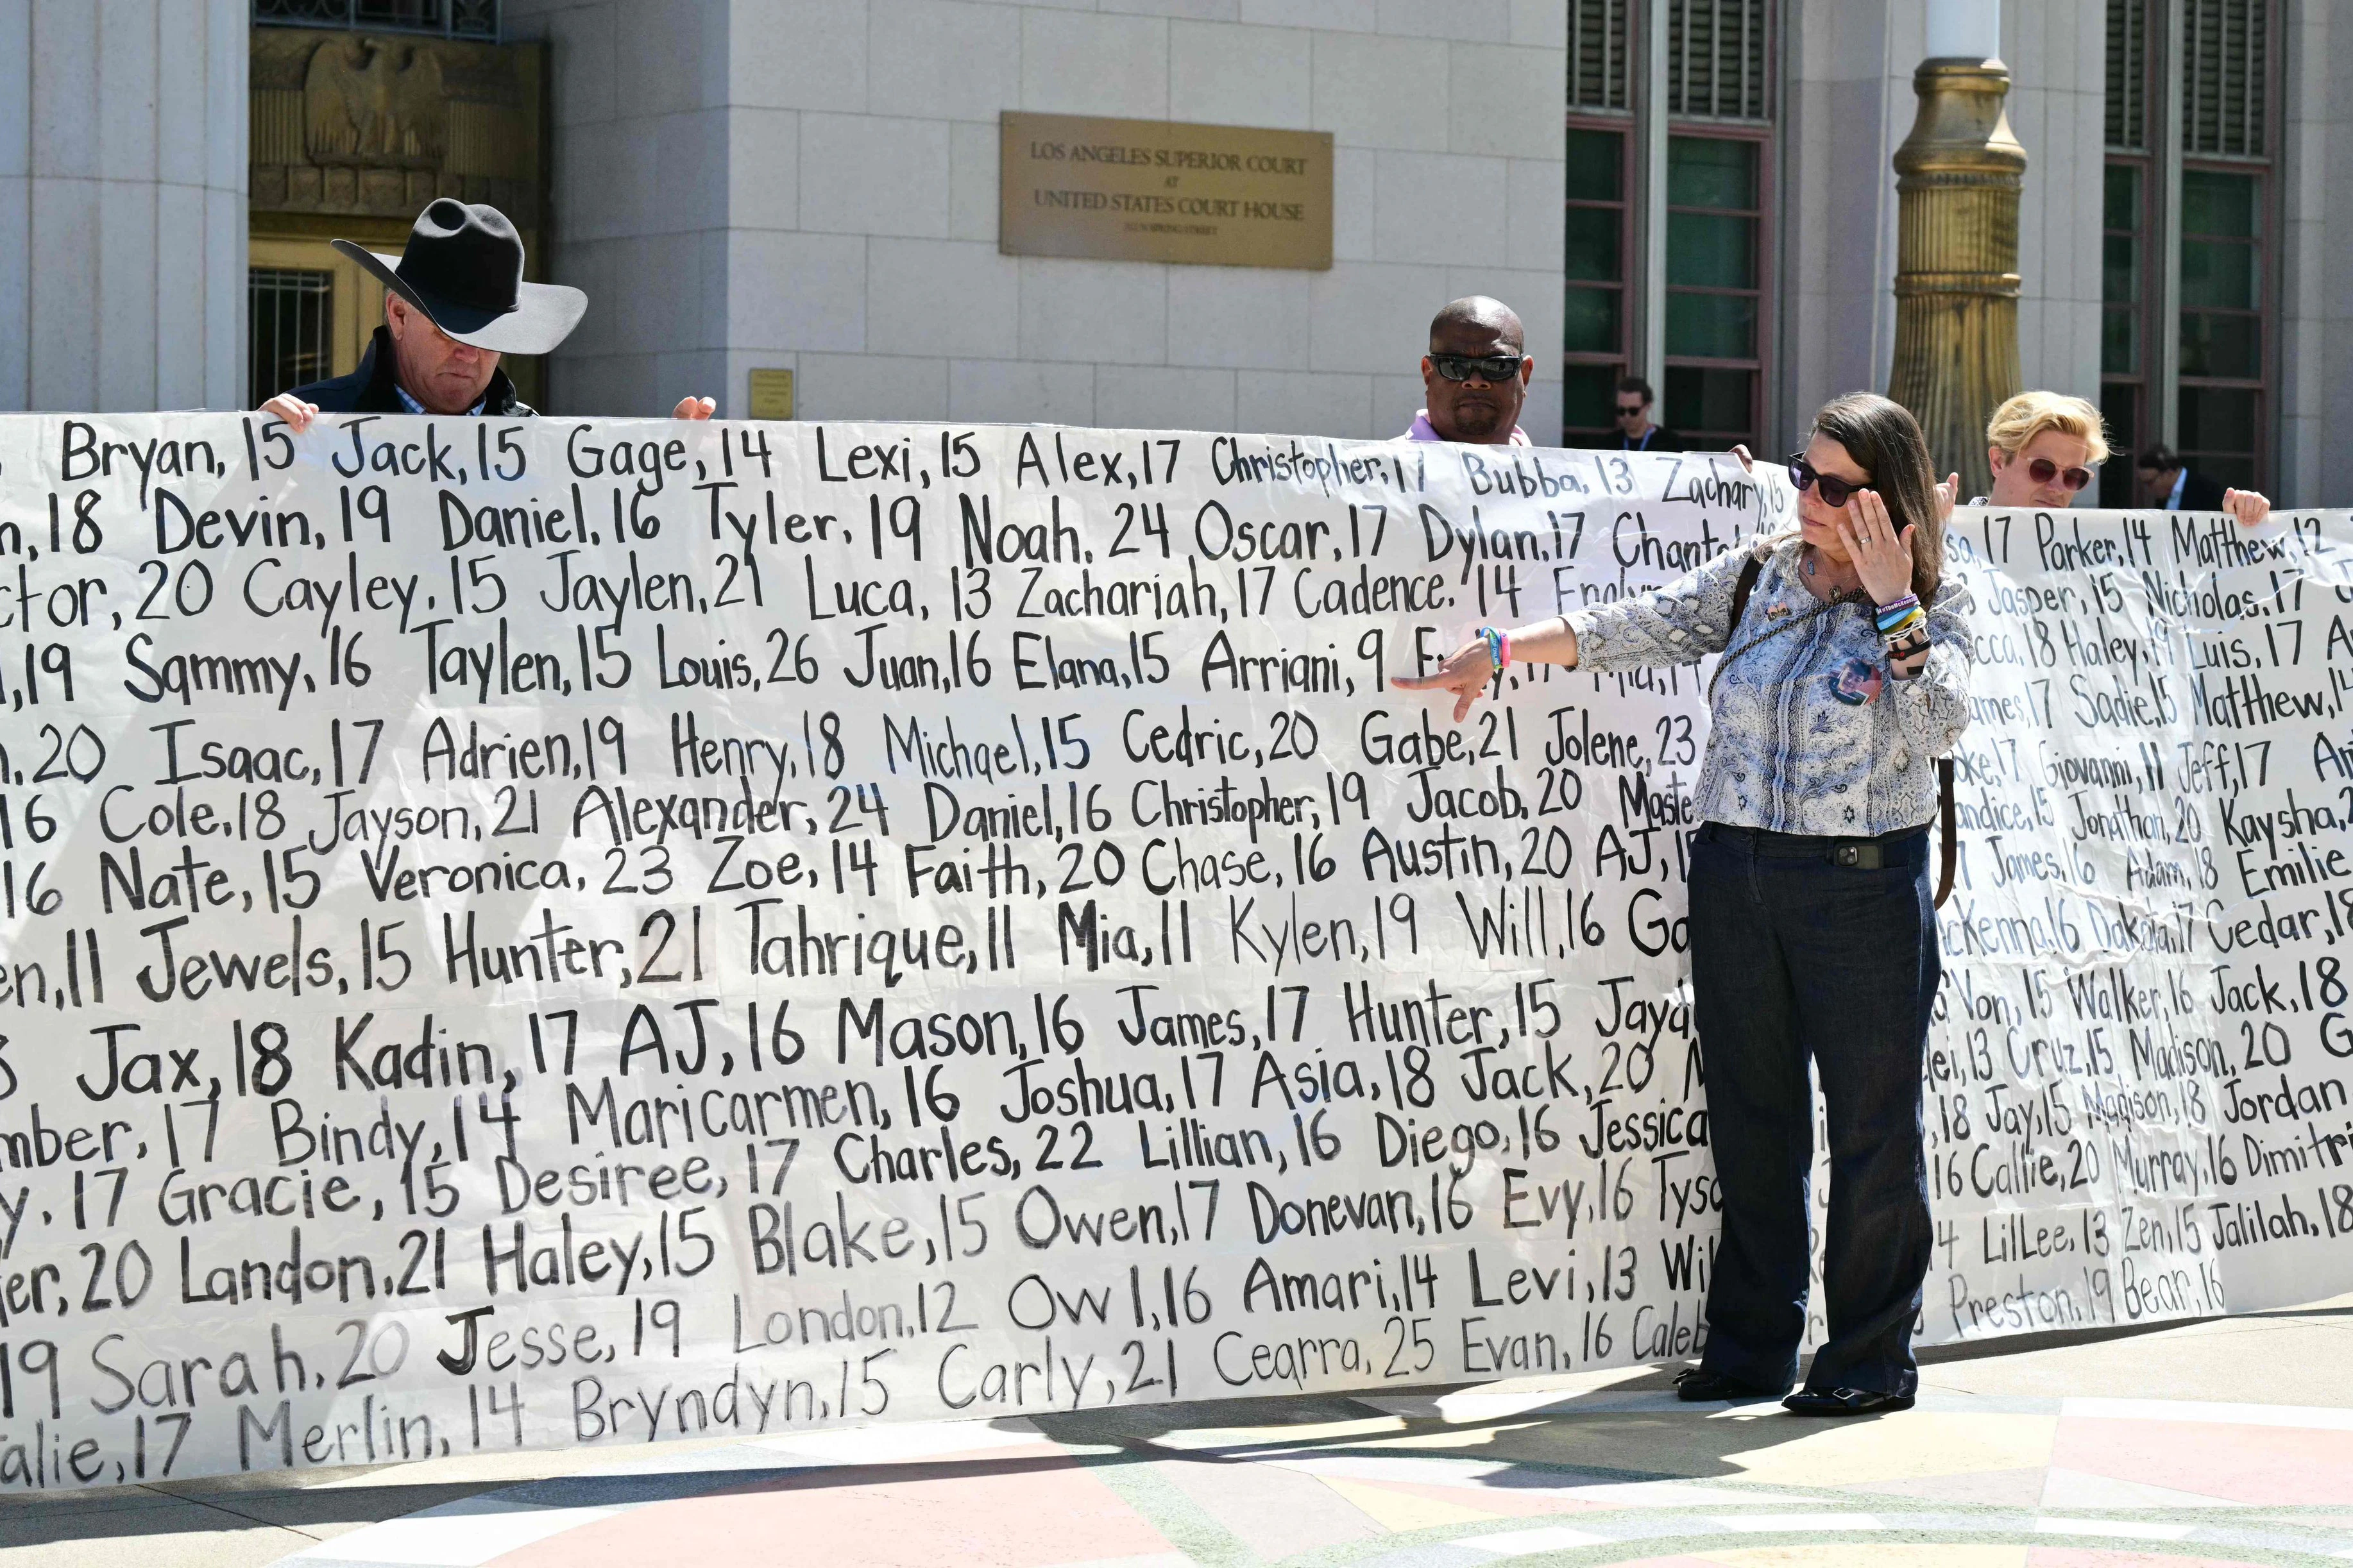 LOS ANGELES SUPERIOR COURT
AT
UNITED STATES COURT HOUSE
Bryan, 15 Jack, 15 Gage, 14 Lexi, 15 Alex, 17 Christopher, 17 Bubba, 13 Zachary, 15
18 Devin, 19 Daniel, 16 Tyler, 19 Noah, 24 Oscar, 17 Dylan, 17
20 Cayley, 15 Jaylen, 21 Luca, 13 Zachariah, 17 Cadence, 14
19 Sammy, 16 Taylen, 15 Louis, 26 Juan, 16 Elana, 15 Arriani, 9
20 Isaac, 17 Adrien, 19 Henry, 18 Michael, 15 Cedric, 20 Gabe, 21 Jolene, 23
16 Cole, 18 Jayson, 21 Alexander, 24 Daniel, 16 Christopher, 19 Jacob, 20
16 Nate, 15 Veronica, 23 Zoe, 14 Faith, 20 Chase, 16 Austin, 20 AJ,
11 Jewels, 15 Hunter, 21 Tahrique, 11 Mia, 11 Kylen, 19 Will, 16
Jax, 18 Kadin, 17 AJ, 16 Mason, 16 James, 17 Hunter, 15
17 Bindy, 14 Maricarmen, 16 Joshua, 17 Asia, 18 Jack, 20
17 Gracie, 15 Desiree, 17 Charles, 22 Lillian, 16 Diego, 16 Jessica
20 Landon, 21 Haley, 15 Blake, 15 Owen, 17 Donevan, 16 Evy, 16
19 Sarah, 20 Jesse, 19 London, 12 Ow 1, 16 Amari, 14 Levi, 13
17 Merlin, 14 Bryndyn, 15 Carly, 21 Cearra, 25 Evan, 16 Caleb
17 Parker, 14 Matthew, 12
Jasper, 15 Nicholas, 17
18 Haley, 19 Luis, 17
17 Sadie, 15 Matthew, 14
17 Giovanni, 11 Jeff, 17
15 Jonathan, 20 Kaysha,
17 James, 16 Adam, 18 Emilie
16 Dakota, 17 Cedar, 18
Von, 15 Walker, 16 Jack, 18
13 Cruz, 15 Madison, 20
18 Jay, 15 Madison, 18 Jordan
16 Callie, 20 Murray, 16 Dimitri
LilLee, 13 Zen, 15 Jalilah, 18
Preston, 19 Bear, 16